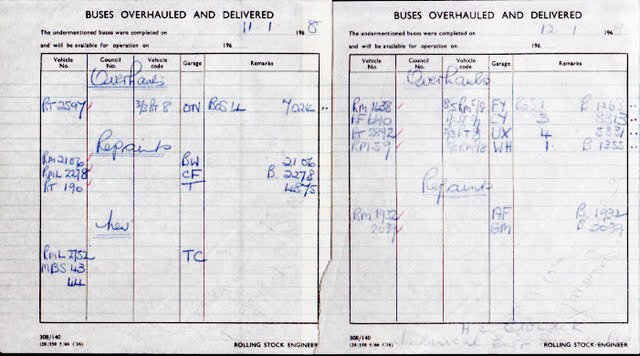 BUSES OVERHAULED AND DELIVERED
The undermentioned buses were completed on 11 . 1 . 196 8
and will be available for operation on 196
Vehicle No. Council No. Vehicle code Garage Remarks
Overhauls
RT 2597 3/3RT 8 ON BoS 4 7024
Repaints
RM 2106 BW 2106
RML 2278 CF B. 2278
RT 190 T 4875
New
RML 2752 TC
MBS 43
44
308/140
ROLLING STOCK ENGINEER
BUSES OVERHAULED AND DELIVERED
The undermentioned buses were completed on 12 . 1 196
and will be available for operation on 196
Vehicle No. Council No. Vehicle code Garage Remarks
Overhauls
RM 1638 FY BoS 1 B 1268
RF 690 CY 3
RT 2892 UX 4
RM 59 WH 1 B 1355
Repaints
RM 1932 AF B. 1932
2039 GM B 2039
308/140
ROLLING STOCK ENGINEER